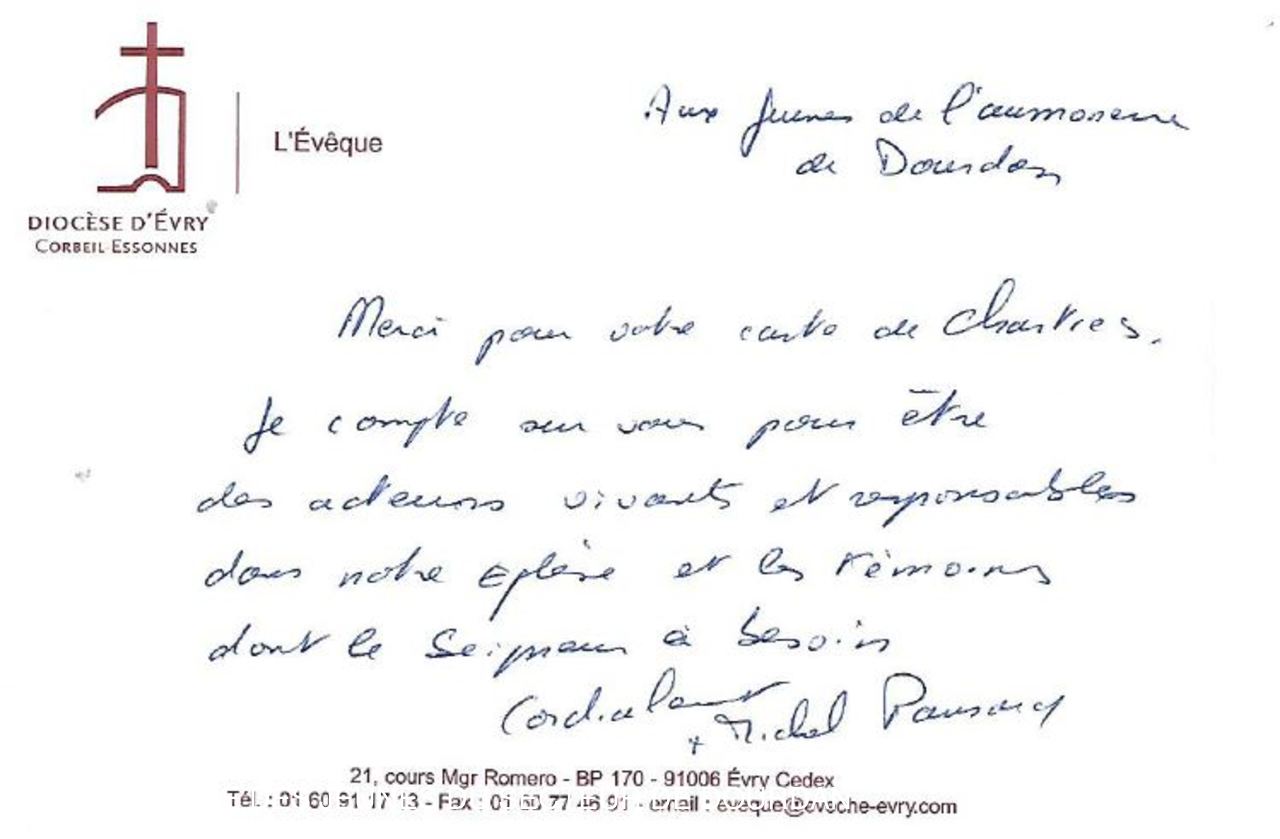 L'Évêque
DIOCÈSE D'ÉVRY
CORBEIL-ESSONNES
Aux jeunes de l'aumonerie
de Dourdan
Merci pour votre carte de Chartres.
Je compte sur vous pour être
des acteurs vivants et responsables
dans notre Eglise et les témoins
dont le Seigneur a besoin
Cordialement
+ Michel Pansard
21, cours Mgr Romero - BP 170 - 91006 Évry Cedex
Tél. : 01 60 91 17 13 - Fax : 01 60 77 46 91 - email : eveque@eveche-evry.com